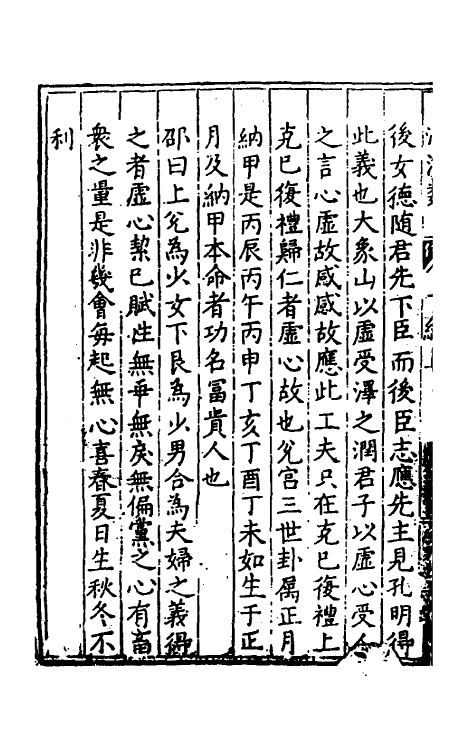 後女德随君先下臣而後臣志應先主見孔明得
此義也大象山以虛受澤之潤君子以虛心受人
之言心虛故感感故應此工夫只在克已復禮上
克已復禮歸仁者虛心故也兊宫三世卦属正月
納甲是丙辰丙午丙申丁亥丁酉丁未如生于正
月及納甲本命者功名冨貴人也
邵曰上兊為少女下艮為少男合為夫婦之義卿
之者虛心挈已賦性無乖無戾無偏黨之心有畜
衆之量是非幾會每起無心喜春夏日生秋冬不
利